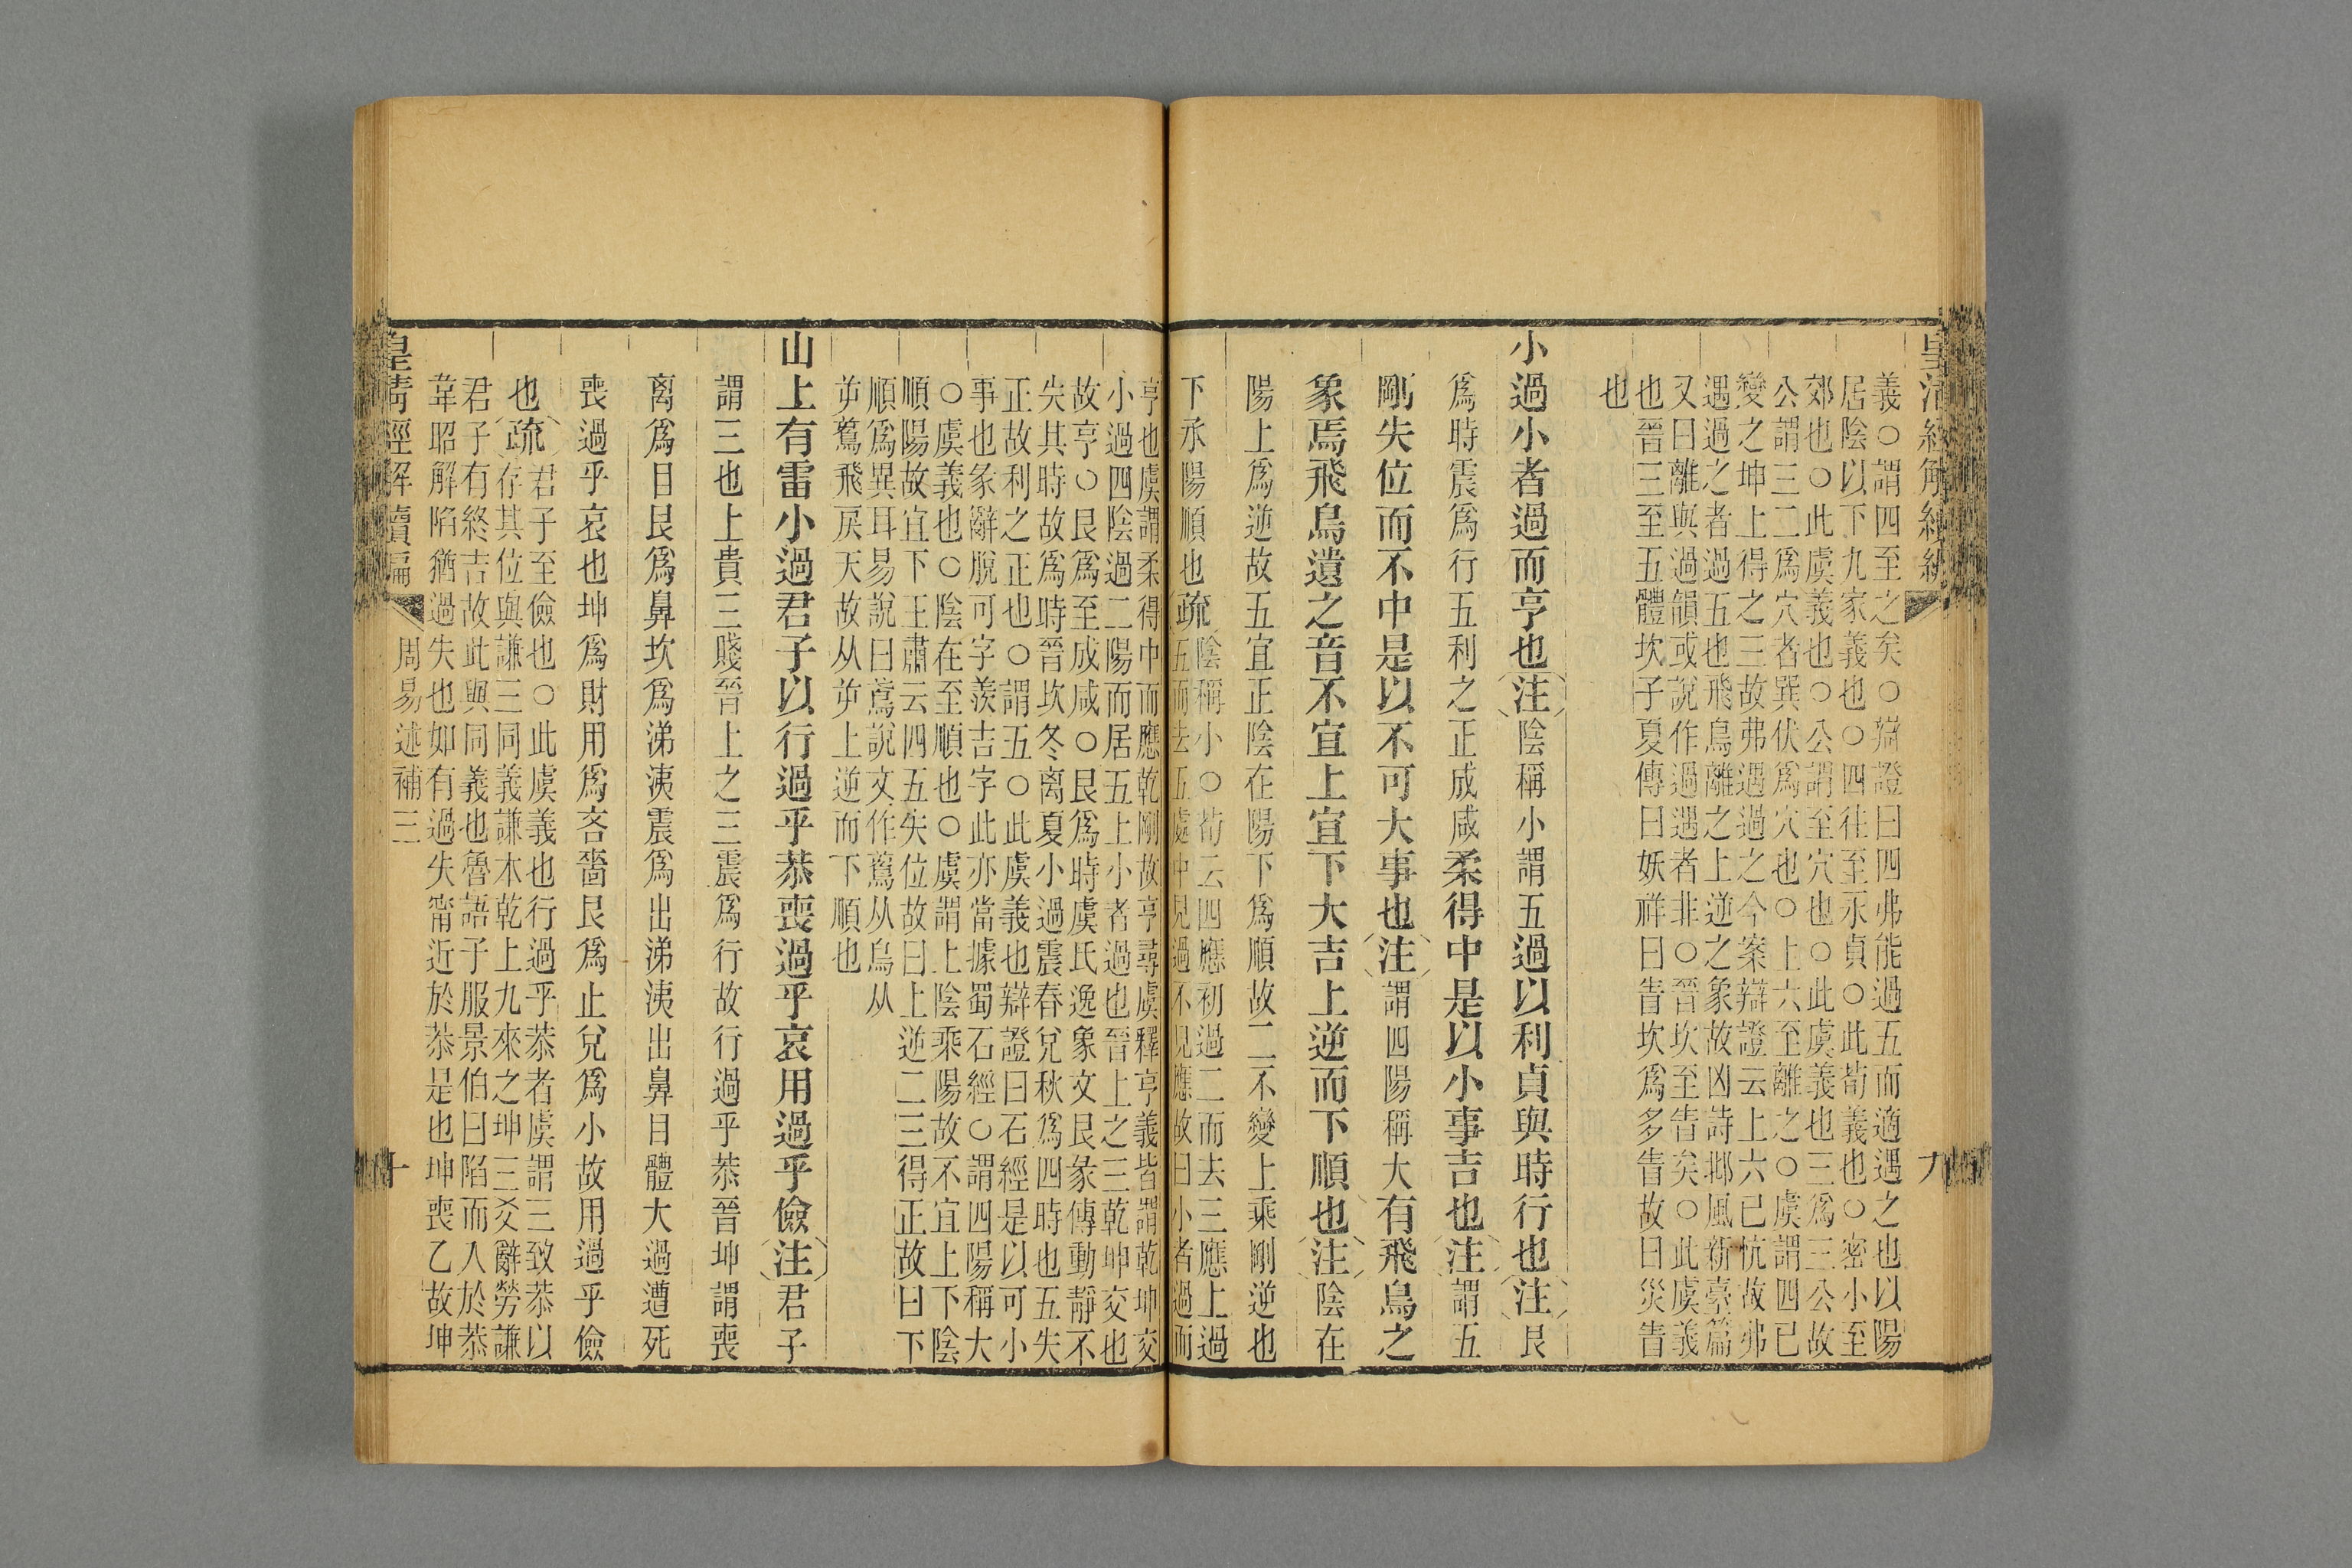 皇清經解續編
九
義○謂四至之矣○辯證曰四弗能過五而適遇之也以陽
居陰以下九家義也○四往至永貞○此荀義也○密小至
郊也○此虞義也○公謂至穴也○此虞義也三爲三公故
公謂三二爲穴者巽伏爲穴也○上六至離之○虞謂四已
變之坤上得之三故弗遇過之今案辯證云上六已忼故弗
遇過之者過五也飛鳥離之上逆之象故凶詩邶風新臺篇
又曰離與過韻或說作過遇者非○晉坎至眚矣○此虞義
也晉三至五體坎子夏傳曰妖祥曰眚坎爲多眚故曰災眚
也
小過小者過而亨也注陰稱小謂五過以利貞與時行也注艮
爲時震爲行五利之正成咸柔得中是以小事吉也注謂五
剛失位而不中是以不可大事也注謂四陽稱大有飛鳥之
象焉飛鳥遺之音不宜上宜下大吉上逆而下順也注陰在
陽上爲逆故五宜正陰在陽下爲順故二不變上乘剛逆也
下承陽順也疏陰稱小○荀云四應初過二而去三應上過
五而去五處中見過不見應故曰小者過而
亨也虞謂柔得中而應乾剛故亨尋虞釋亨義皆謂乾坤交
小過四陰過二陽而居五上小者過也晉上之三乾坤交也
故亨○艮爲至成咸○艮爲時虞氏逸象文艮彖傳動靜不
失其時故爲時晉坎冬离夏小過震春兌秋爲四時也五失
正故利之正也○謂五○此虞義也辯證曰石經是以可小
事也彖辭脫可字羨吉字此亦當據蜀石經○謂四陽稱大
○虞義也○陰在至順也○虞謂上陰乘陽故不宜上下陰
順陽故宜下王肅云四五失位故曰上逆二三得正故曰下
順爲異耳易說曰鳶說文作䳒从鳥从
屰䳒飛戾天故从屰上逆而下順也
山上有雷小過君子以行過乎恭喪過乎哀用過乎儉注君子
謂三也上貴三賤晉上之三震爲行故行過乎恭晉坤謂喪
离爲目艮爲鼻坎爲涕洟震爲出涕洟出鼻目體大過遭死
喪過乎哀也坤爲財用爲吝嗇艮爲止兌爲小故用過乎儉
也疏君子至儉也○此虞義也行過乎恭者虞謂三致恭以
存其位與謙三同義謙本乾上九來之坤三爻辭勞謙
君子有終吉故此與同義也魯語子服景伯曰陷而入於恭
韋昭解陷猶過失也如有過失甯近於恭是也坤喪乙故坤
皇清經解續編
周易述補三
十